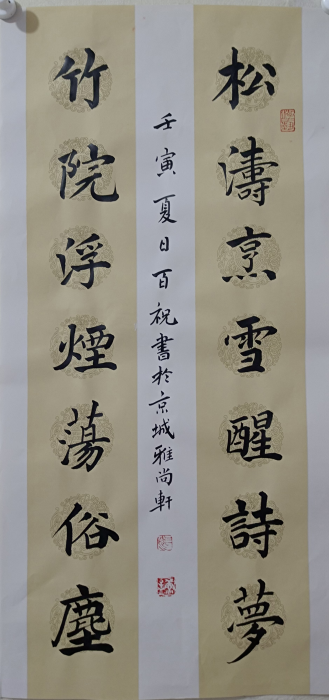 松濤烹雪醒詩夢
竹院浮煙蕩俗塵
壬寅夏日百祝書於京城雅尚軒